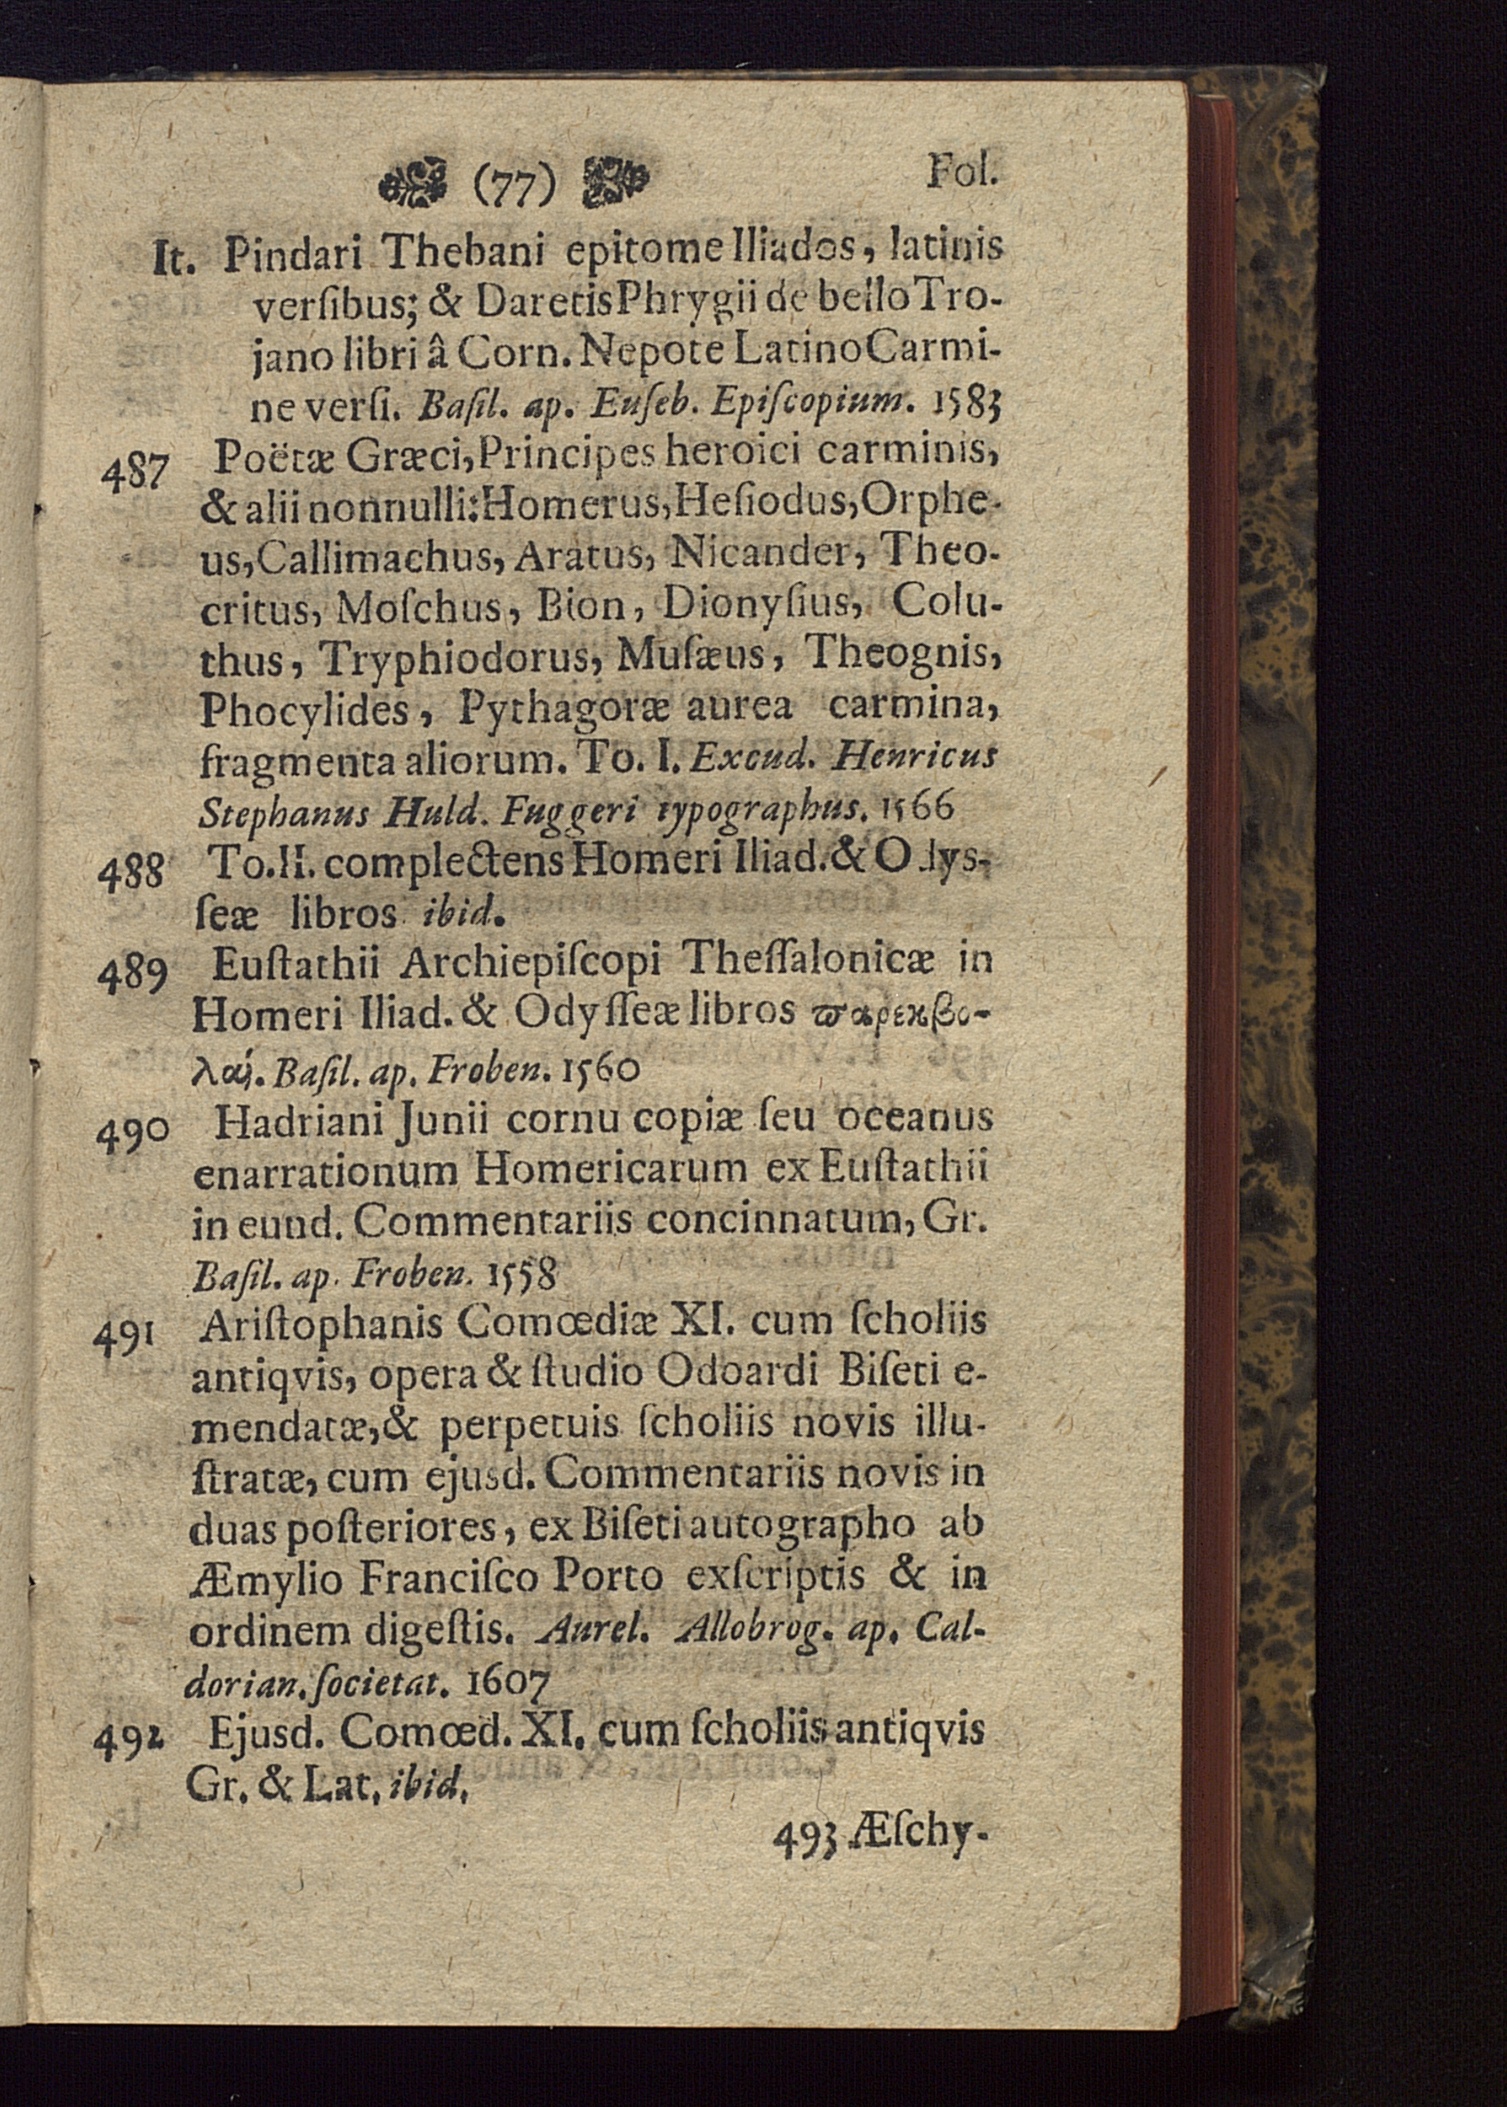 (77) Fol.
It. Pindari Thebani epitome Iliados, latinis
verſibus; & Daretis Phrygii de bello Tro-
jano libri â Corn. Nepote Latino Carmi-
ne verſi. Baſil. ap. Euſeb. Epiſcopium. 1583
487 Poëtæ Græci, Principes heroici carminis,
& alii nonnulli: Homerus, Heſiodus, Orphe-
us, Callimachus, Aratus, Nicander, Theo-
critus, Moſchus, Bion, Dionyſius, Colu-
thus, Tryphiodorus, Muſæus, Theognis,
Phocylides, Pythagoræ aurea carmina,
fragmenta aliorum. To. I. Excud. Henricus
Stephanus Huld. Fuggeri typographus. 1566
488 To. II. complectens Homeri Iliad. & Odyſ-
ſeæ libros ibid.
489 Euſtathii Archiepiſcopi Theſſalonicæ in
Homeri Iliad. & Odyſſeæ libros ϖαρεκβο-
λαί. Baſil. ap. Froben. 1560
490 Hadriani Junii cornu copiæ ſeu oceanus
enarrationum Homericarum ex Euſtathii
in eund. Commentariis concinnatum, Gr.
Baſil. ap. Froben. 1558
491 Ariſtophanis Comœdiæ XI. cum ſcholiis
antiqvis, opera & ſtudio Odoardi Biſeti e-
mendatæ, & perpetuis ſcholiis novis illu-
ſtratæ, cum ejusd. Commentariis novis in
duas poſteriores, ex Biſeti autographo ab
Æmylio Franciſco Porto exſcriptis & in
ordinem digeſtis. Aurel. Allobrog. ap. Cal-
dorian. ſocietat. 1607
492 Ejusd. Comœd. XI. cum ſcholiis antiqvis
Gr. & Lat. ibid.
493 Æſchy-